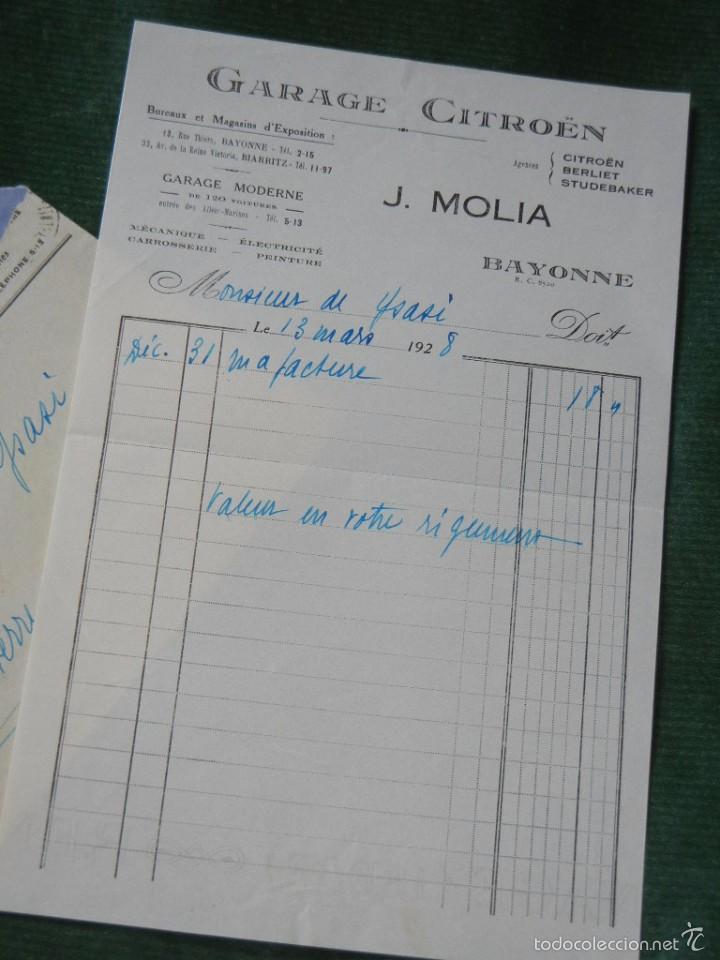 GARAGE CITROËN
Bureaux et Magasins d'Exposition :
12, Rue Thiers, BAYONNE - Tél. 2-15
33, Av. de la Reine Victoria, BIARRITZ - Tél. 11-97
GARAGE MODERNE
DE 120 VOITURES
entrée des Allées-Marines - Tél. 5-13
MÉCANIQUE — ÉLECTRICITÉ
CARROSSERIE — PEINTURE
Agences
CITROËN
BERLIET
STUDEBAKER
J. MOLIA
BAYONNE
R. C.
Monsieur de Ysasi Doit
Le 13 mars 1928
Déc. 31 ma facture 18 "
Valeur en votre règlement
Ysasi
erre
todocoleccion.net